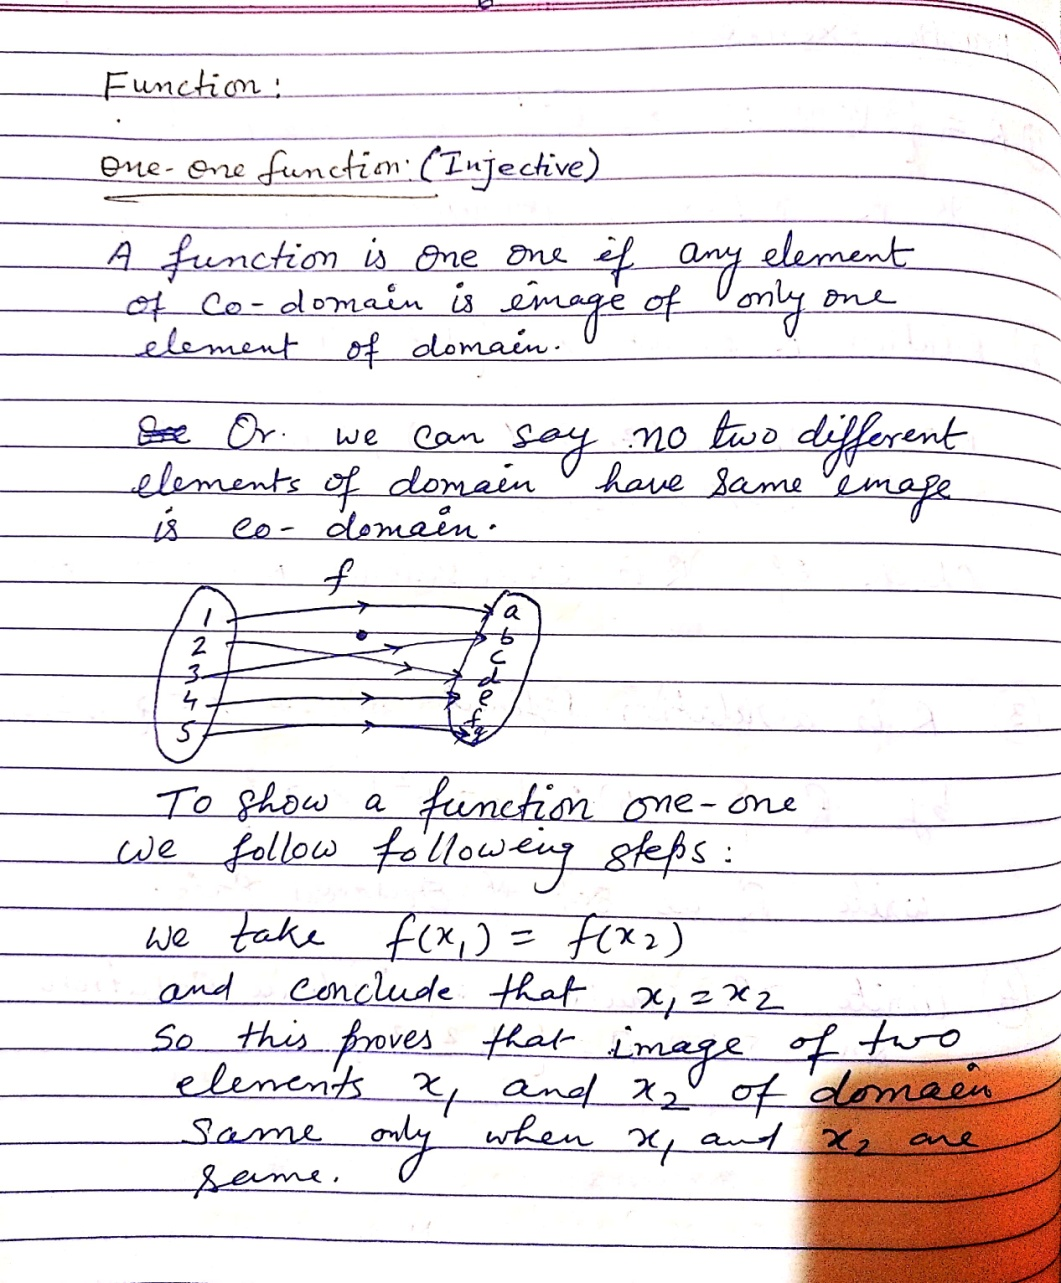 Function :
One-One function: (Injective)
A function is One One if any element
of Co-domain is image of only one
element of domain.
Or. we can say no two different
elements of domain have same image
is co-domain.
f
1 a
2 b
3 c
4 d
5 e
f
g
To show a function one-one
we follow following steps :
We take f(x₁) = f(x₂)
and conclude that x₁ = x₂
So this proves that image of two
elements x₁ and x₂ of domain
same only when x₁ and x₂ are
same.